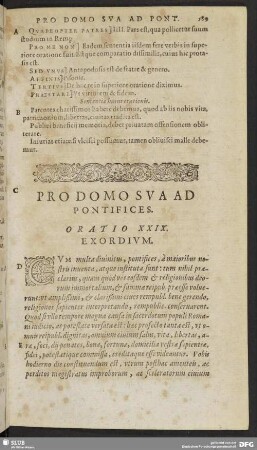 PRO DOMO SVA AD PONT.
A QVAPROPTER PATRES] Illi. Pars est, qua pollicetur suum
studium in Remp.
PRO ME NON] Eadem sententia iisdem fere verbis in superiore
oratione fuit. Est que comparatio dissimilis, cuius hic protasis est.
SED VNVS] Antapodosis est de fratre & genero.
AFFINIS] Pisone.
TERTIVS] De hoc re in superiore oratione diximus.
PRAESTARE] Virtutem & fidem.
Sententiae huius orationis.
Parentes charissimos habere debemus, quod ab iis nobis vita,
patrimonium, libertas, ciuitas tradita est.
Publici beneficii memoria, debet priuatam offensionem oblitterare.
Iniurias etiamsi vlcisci possumus, tamen obliuisci malle debemus.
C
PRO DOMO SVA AD
PONTIFICES.
ORATIO XXIX.
EXORDIVM.
D
CVM multa diuinitus, pontifices, à maioribus nostris
inuenta, atque instituta sunt: tum nihil præclarius,
quàm quòd vos eosdem & religionibus deorum
immortalium, & summæ reipub. præesse voluerunt:
vt amplissimi, & clarissimi ciues rempubl. bene gerendo,
religiones sapienter interpretando, rempublic. conseruarent.
Quòd si vllo tempore magna causa in sacerdotum populi Romani
iudicio, ac potestate versata est: hæc profectò tanta est, vt omnis
reipubl. dignitas, omnium ciuium salus, vita, libertas, aræ,
foci, dij penates, bona, fortunæ, domicilia vestræ sapientiæ,
fidei, potestatique commissa, creditaque esse videantur. Vobis
hodierno die constituendum est, vtrum posthac amentes, ac
perditos magistratus improborum, ac sceleratorum ciuium
SLUB
DFG